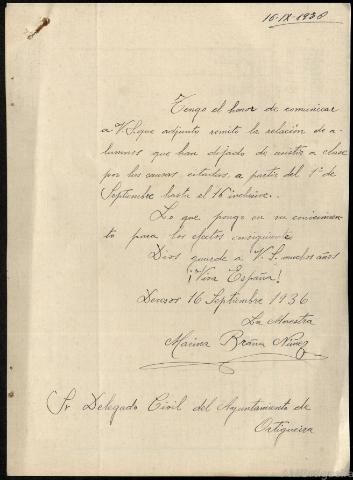 16-IX-1936
Tengo el honor de comunicar
a V.S. que adjunto remito la relación de a-
lumnos que han dejado de asistir a clase
por las causas citadas, a partir del 1º de
Septiembre hasta el 16 inclusive.
Lo que pongo en su conocimien-
to para los efectos consiguientes
Dios guarde a V. S. muchos años
¡Viva España!
16 Septiembre 1936
La Maestra
Braña Núñez
Sr Delegado Civil del Ayuntamiento de
Ortigueira